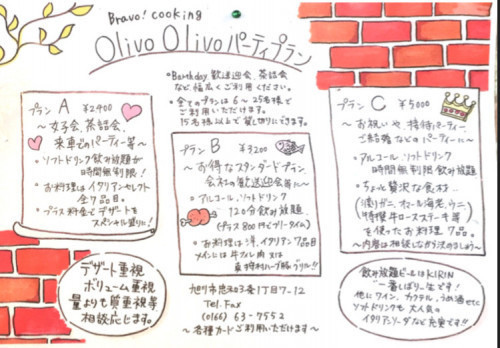 Bravo! cooking
Olivo Olivo パーティプラン
・Birthday 歓送迎会、茶話会
など、幅広くご利用ください。
・全てのプランは 6〜25名様で
ご利用いただけます。
15名様以上で貸し切りにできます。
プラン A ¥2900
〜女子会、茶話会、
とのパーティー等〜
・ソフトドリンク飲み放題が
時間無制限！
・お料理はイタリアンセレクト
全7品目。
・プラス料金でデザートを
スペシャル盛りに！
プラン B ¥3200
〜お得なスタンダードプラン、
会社の歓送迎会等に〜
・アルコール、ソフトドリンク
120分飲み放題
(プラス800円でフリータイム)
・お料理は洋、イタリアン7品目
メインには牛フィレ肉 又は
ハーブ豚グリル!!
プラン C ¥5000
〜お祝いや、接待パーティー、
ご結婚などのパーティーに〜
・アルコール、ソフトドリンク
時間無制限飲み放題
・ちょっと贅沢な食材…
(活)ガニ、オマール海老、ウニ
特撰牛ロースステーキ等
を使ったお料理 7品。
〜内容は相談しながら決めましょう〜
デザート重視
ボリューム重視
量よりも質重視等
相談応じます。
旭川市忠和3条1丁目7-12
Tel. Fax
(0166) 63-7552
〜各種カードご利用いただけます〜
飲み放題ビールはKIRIN
"一番しぼり"生です！
他にワイン、カクテル、うめ酒etc
ソフトドリンクも大人気の
イタリアンソーダなど充実です!!